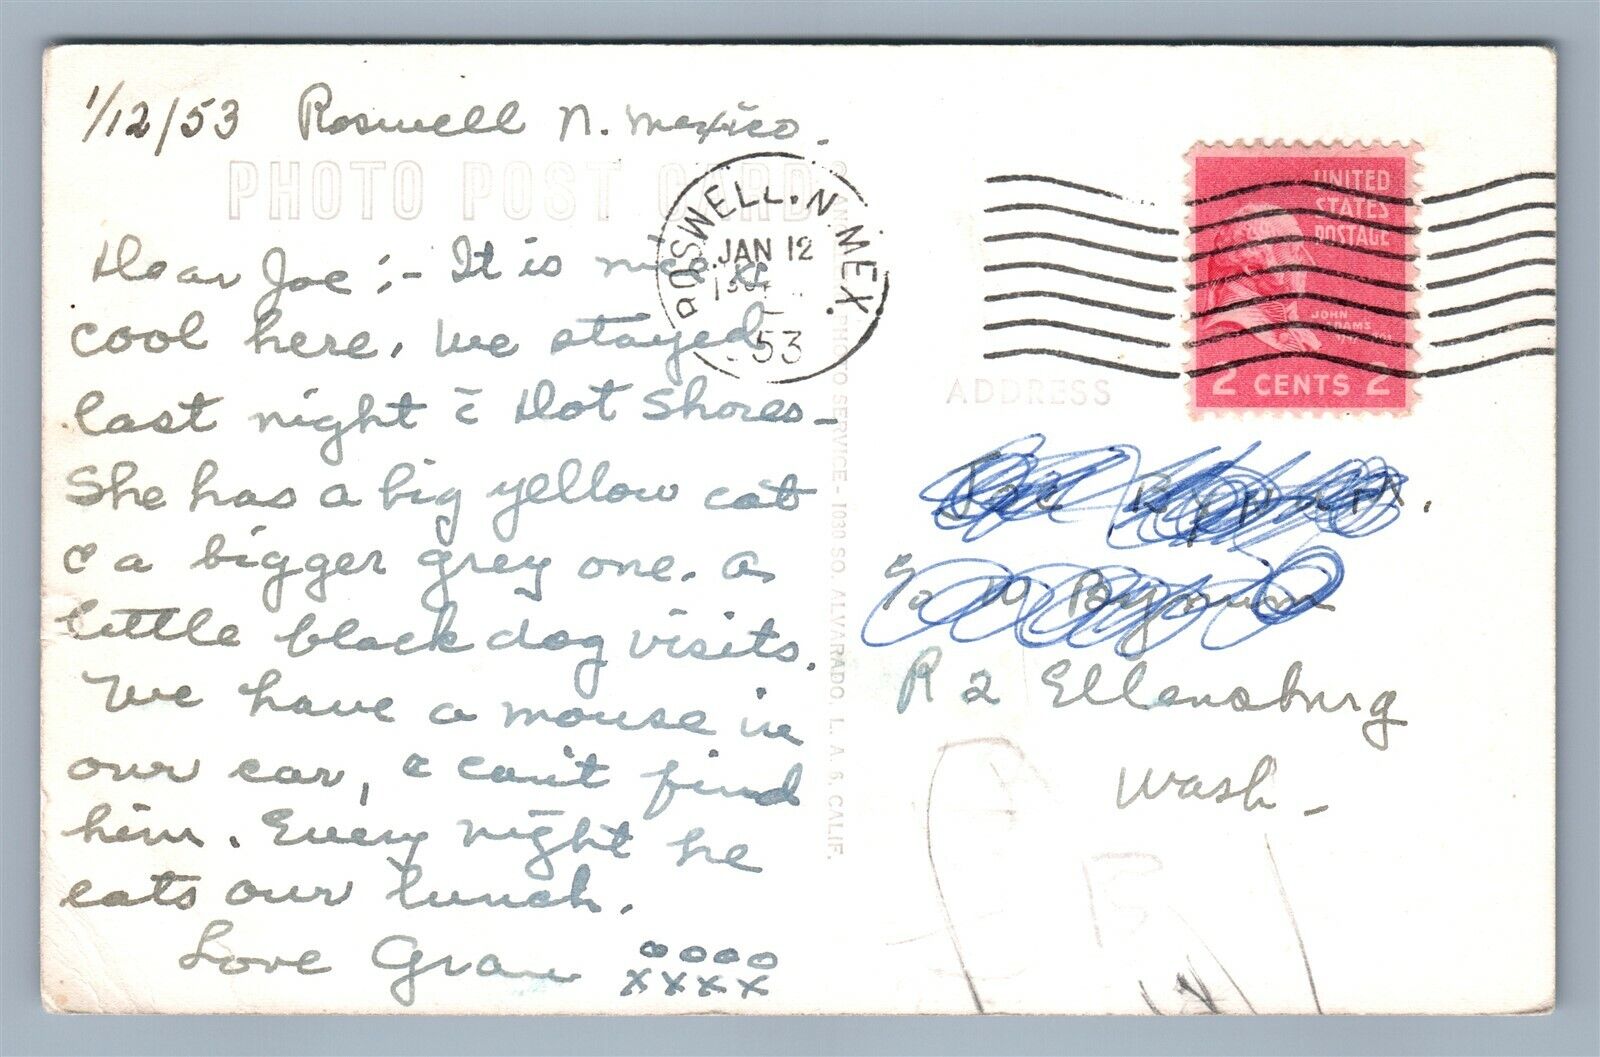 1/12/53 Roswell N. Mexico.
PHOTO POST CARD
Dear Joe:- It is nice &
cool here. We stayed
last night c̄ Dot Shores-
She has a big yellow cat
& a bigger grey one. a
little black dog visits.
We have a mouse in
our car, & can't find
him. Every night he
eats our lunch.
Love Gran oooo
xxxx
ROSWELL. N. MEX.
JAN 12
53
PHOTO SERVICE - 1030 SO. ALVARADO, L. A. 6, CALIF.
UNITED
STATES
POSTAGE
JOHN
ADAMS
2 CENTS 2
ADDRESS
Joe Bynum.
c/o W Bynum
R 2 Ellensburg
Wash-